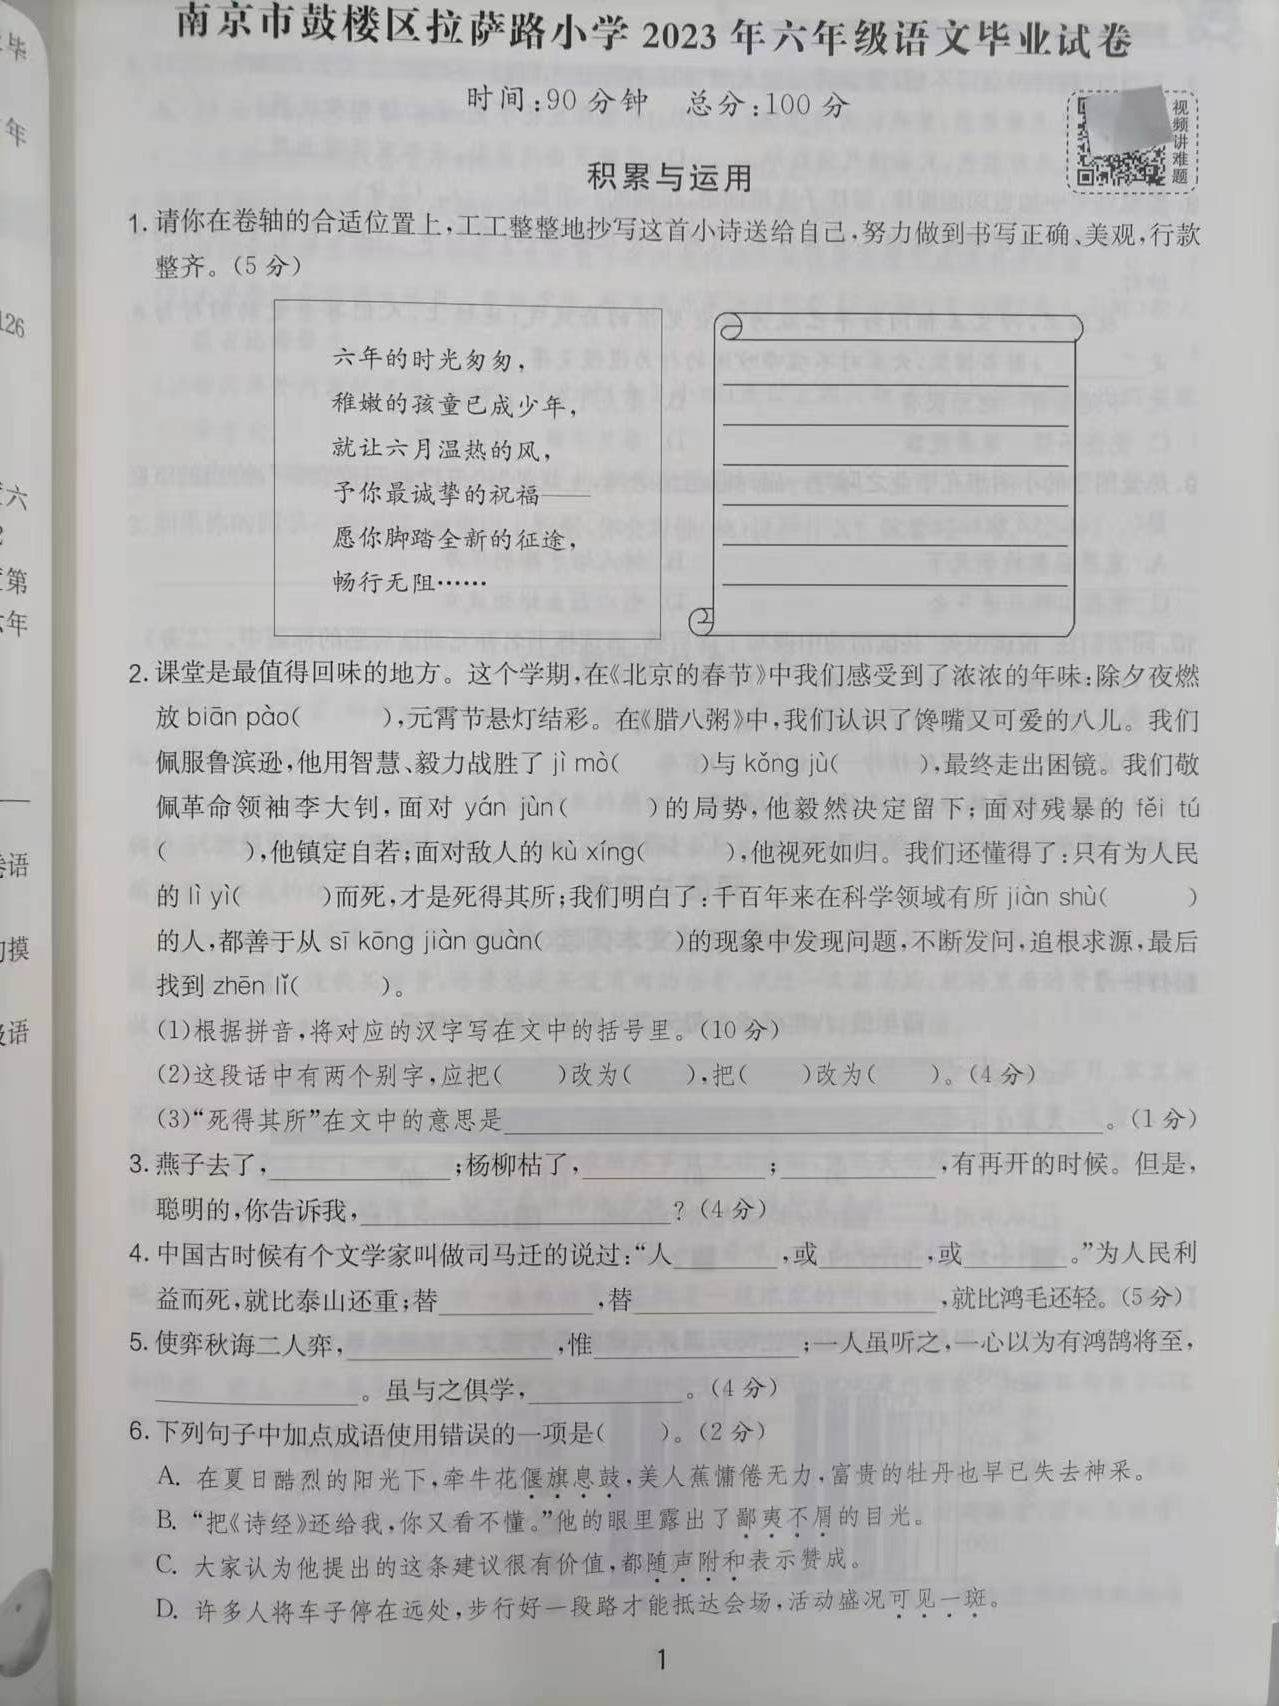 南京市鼓楼区拉萨路小学 2023 年六年级语文毕业试卷
时间:90 分钟 总分:100 分
视频讲难题
积累与运用
1. 请你在卷轴的合适位置上,工工整整地抄写这首小诗送给自己,努力做到书写正确、美观,行款
整齐。(5 分)
六年的时光匆匆,
稚嫩的孩童已成少年,
就让六月温热的风,
予你最诚挚的祝福——
愿你脚踏全新的征途,
畅行无阻……
2. 课堂是最值得回味的地方。这个学期,在《北京的春节》中我们感受到了浓浓的年味:除夕夜燃
放 biān pào( ),元霄节悬灯结彩。在《腊八粥》中,我们认识了馋嘴又可爱的八儿。我们
佩服鲁滨逊,他用智慧、毅力战胜了 jì mò( )与 kǒng jù( ),最终走出困镜。我们敬
佩革命领袖李大钊,面对 yán jùn( )的局势,他毅然决定留下;面对残暴的 fěi tú
( ),他镇定自若;面对敌人的 kù xíng( ),他视死如归。我们还懂得了:只有为人民
的 lì yì( )而死,才是死得其所;我们明白了:千百年来在科学领域有所 jiàn shù( )
的人,都善于从 sī kōng jiàn guàn( )的现象中发现问题,不断发问,追根求源,最后
找到 zhēn lǐ( )。
(1)根据拼音,将对应的汉字写在文中的括号里。(10 分)
(2)这段话中有两个别字,应把( )改为( ),把( )改为( )。(4 分)
(3)“死得其所”在文中的意思是____。(1 分)
3. 燕子去了,____;杨柳枯了,____;____,有再开的时候。但是,
聪明的,你告诉我,____?(4 分)
4. 中国古时候有个文学家叫做司马迁的说过:“人____,或____,或____。”为人民利
益而死,就比泰山还重;替____,替____,就比鸿毛还轻。(5 分)
5. 使弈秋诲二人弈,____,惟____;一人虽听之,一心以为有鸿鹄将至,
____。虽与之俱学,____。(4 分)
6. 下列句子中加点成语使用错误的一项是( )。(2 分)
A. 在夏日酷烈的阳光下,牵牛花偃旗息鼓,美人蕉慵倦无力,富贵的牡丹也早已失去神采。
B. “把《诗经》还给我,你又看不懂。”他的眼里露出了鄙夷不屑的目光。
C. 大家认为他提出的这条建议很有价值,都随声附和表示赞成。
D. 许多人将车子停在远处,步行好一段路才能抵达会场,活动盛况可见一斑。
1